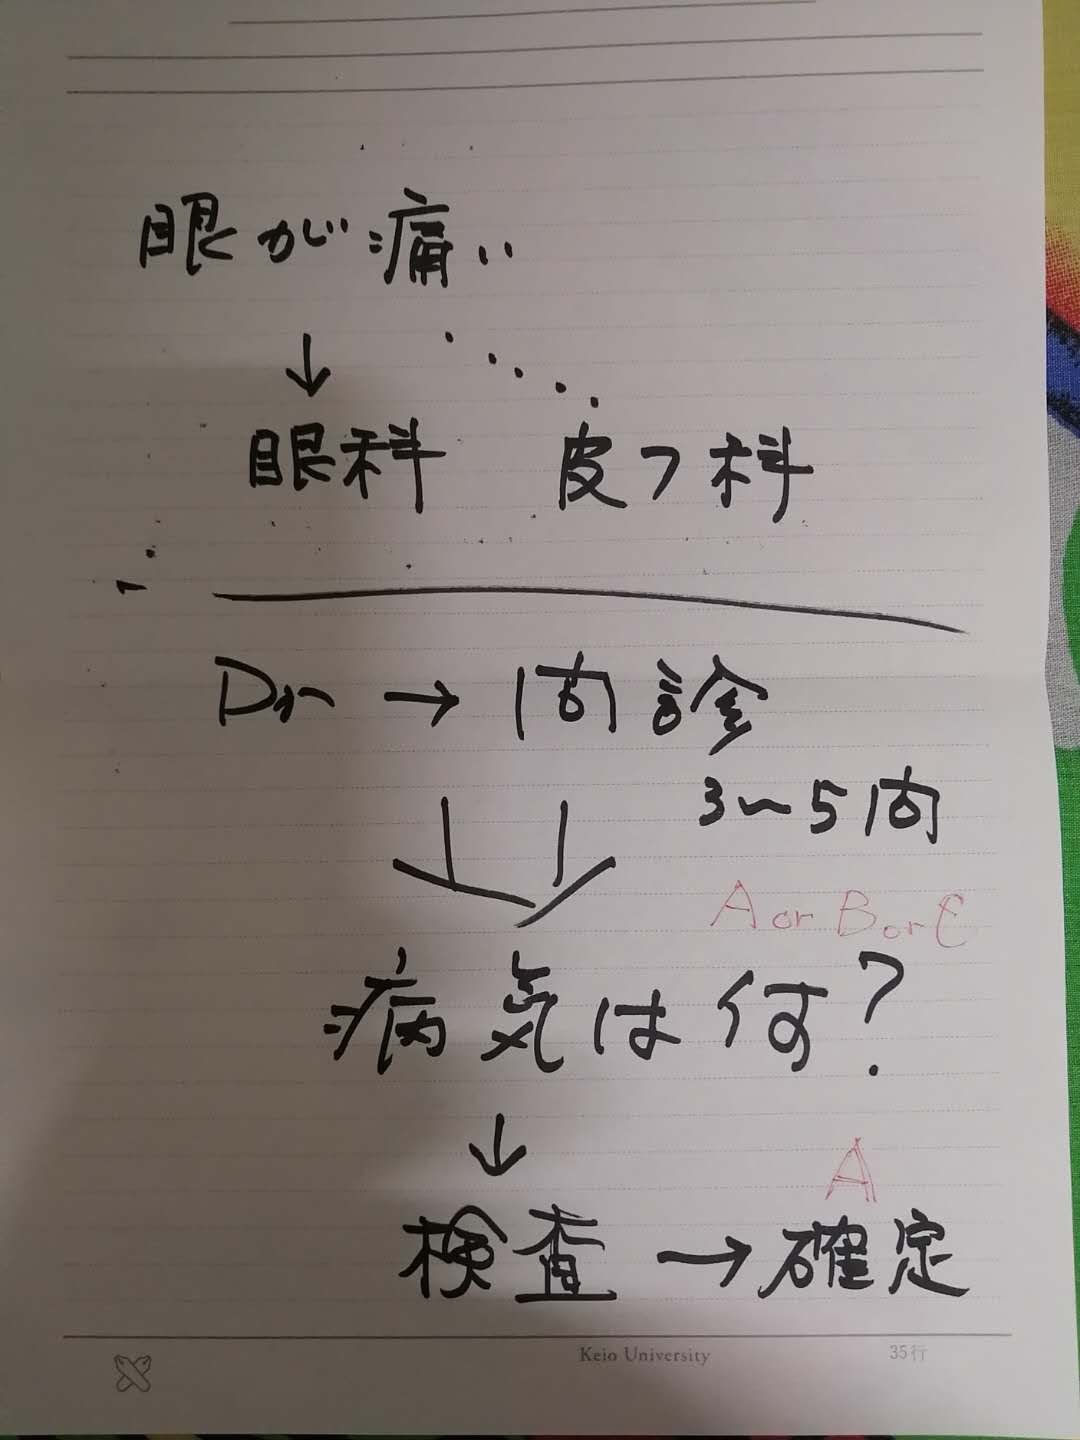 眼が痛い
↓
眼科 皮フ科
Dr → 問診
3～5問
A or B or C
病気は何?
↓
A
検査 → 確定
Keio University 35行